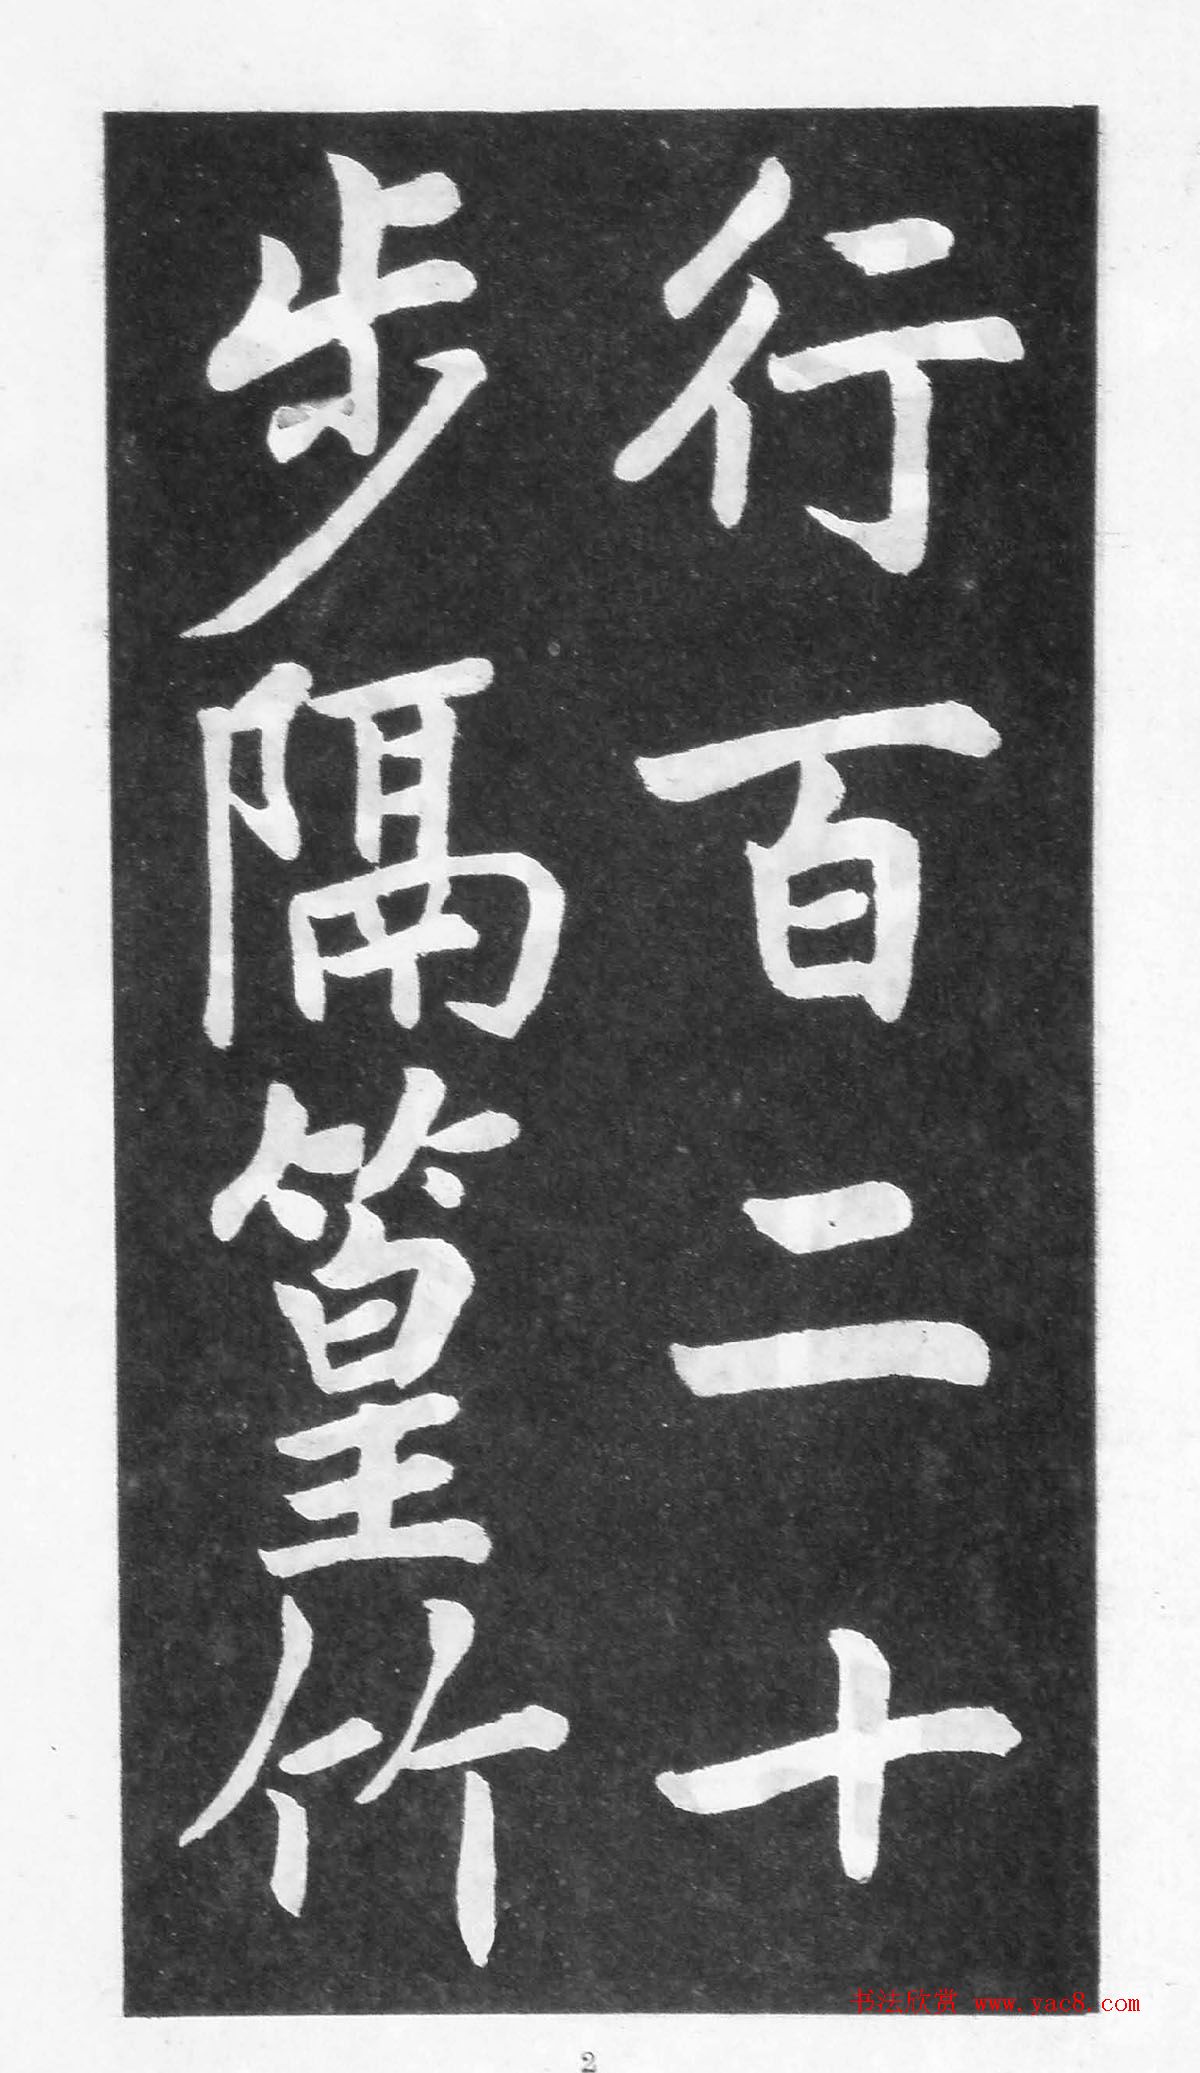 行百二十
步隔篁竹
书法欣赏 www.yac8.com
2